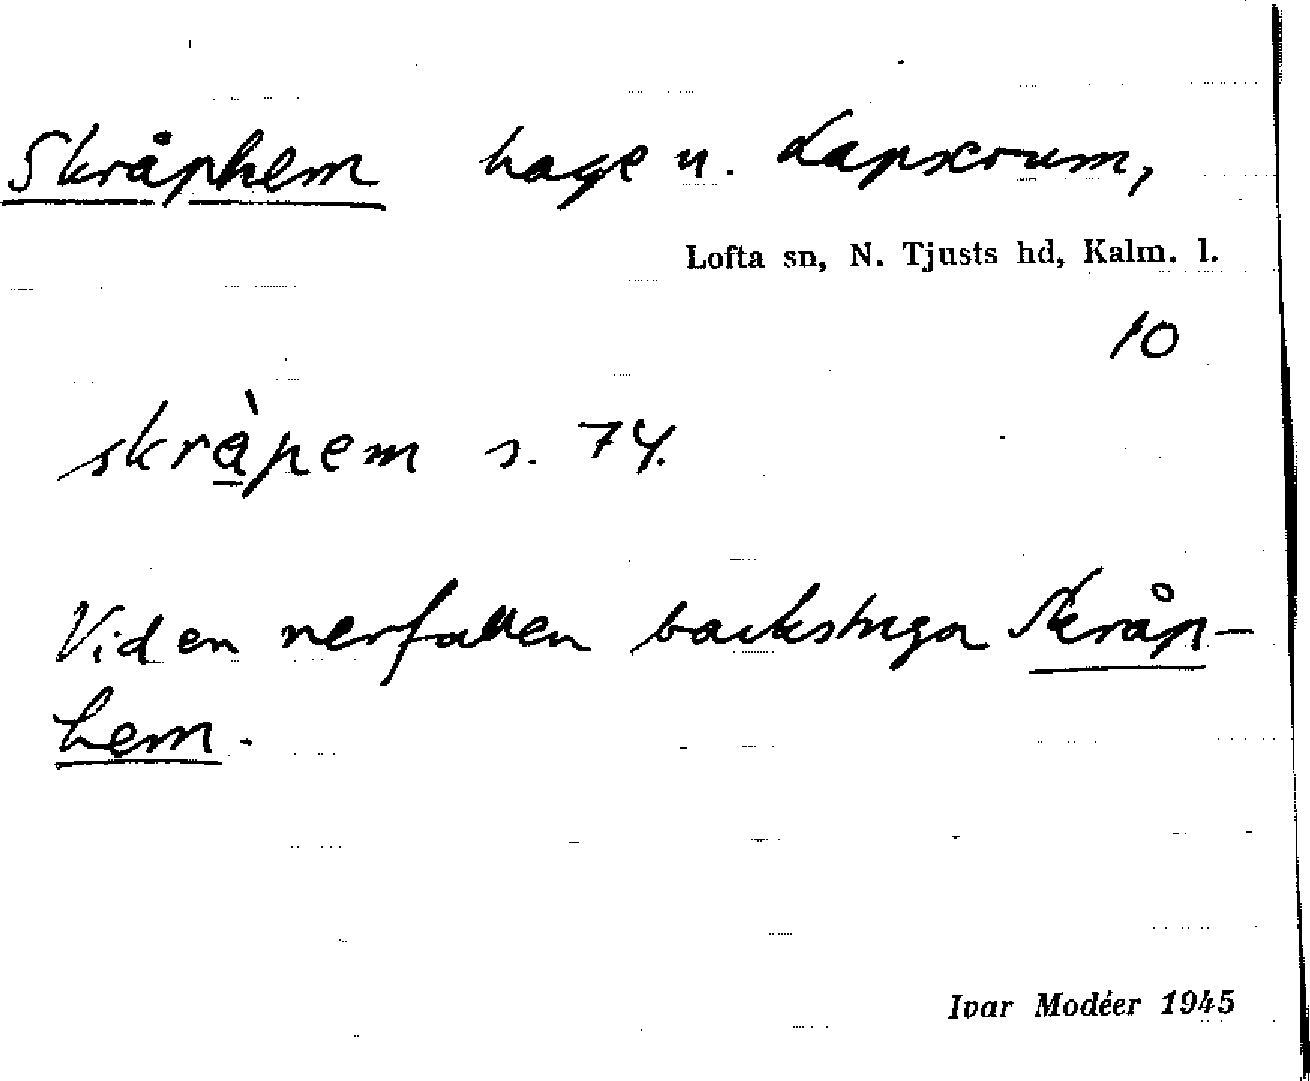 Skråphem hage u. Lapscrum,
Lofta sn, N. Tjusts hd, Kalm. l.
10
skrà̱pem s. 74.
Vid en nerfallen backstuga Skråp-
hem.
Ivar Modéer 1945